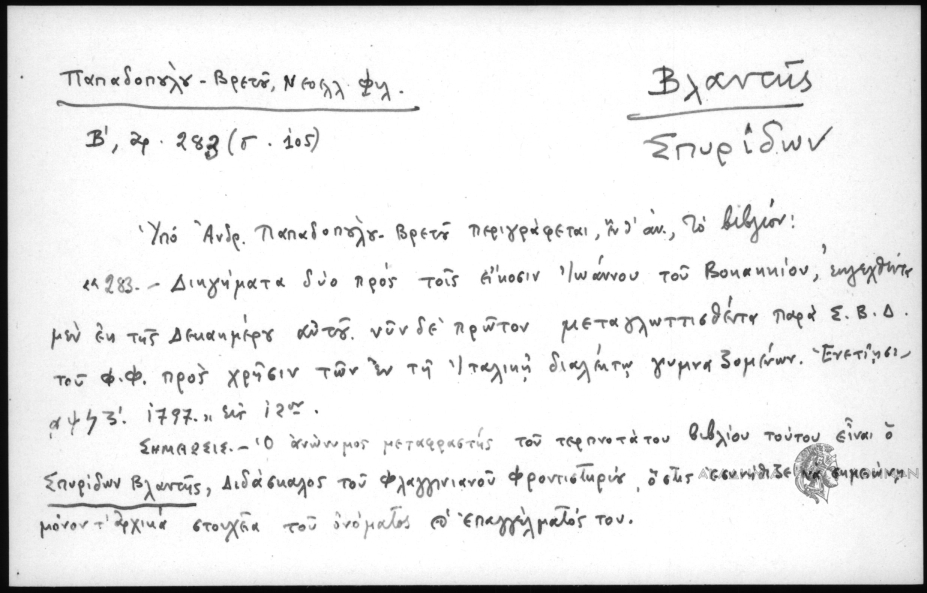 Παπαδοπούλου - Βρετοῦ, Νεοελλ. Φιλ.
Βλαντῆς
Β', ἀρ. 283 (σ. 105)
Σπυρίδων
Ὑπό Ἀνδρ. Παπαδοπούλου - Βρετοῦ περιγράφεται, ἔνθ' ἀν., τό βιβλίον:
«283. - Διηγήματα δύο πρός τοῖς εἴκοσιν Ἰωάννου τοῦ Βοκακκίου, ἐκλεχθέντα
μέν ἐκ τῆς Δεκαημέρου αὐτοῦ. νῦν δέ πρῶτον μεταγλωττισθέντα παρά Σ. Β. Δ.
τοῦ Φ. Φ. πρός χρῆσιν τῶν ἐν τῇ Ἰταλικῇ διαλέκτῳ γυμναζομένων. Ἐνετίῃσι
1797.» εἰς 12ον.
Σημείωσις. - Ὁ ἀνώνυμος μεταφραστής τοῦ τερπνοτάτου βιβλίου τούτου εἶναι ὁ
Σπυρίδων Βλαντῆς, Διδάσκαλος τοῦ Φλαγγινιανοῦ Φροντιστηρίου, ὅστις ἐσυνήθιζε νά σημειώνῃ
μόνον τ' ἀρχικά στοιχεῖα τοῦ ὀνόματος ἐπαγγέλματός του.